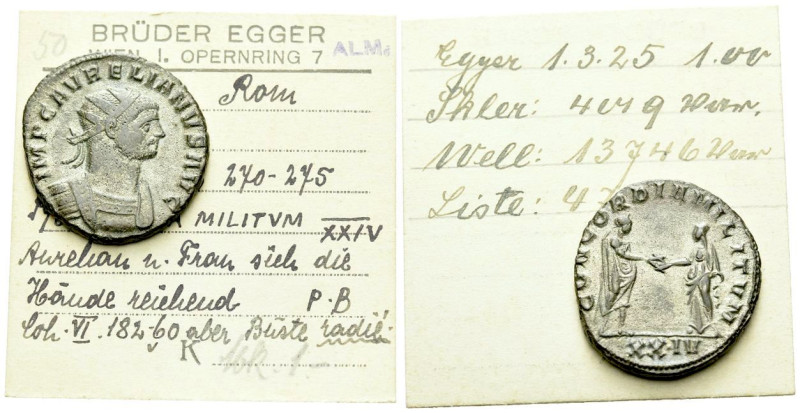 50
BRÜDER EGGER
WIEN I. OPERNRING 7
ALM.
IMP C AVRELIANVS AVG
Rom
270-275
MILITVM XXIV
Aurelian u. Frau sich die
Hände reichend P.B
Coh. VI. 182-60 aber Büste radié.
K
1.-
Egger 1.3.25 1.00
4019 Var.
Well: 13746 Var
Liste: 4
CONCORDIA MILITUM
XXIV